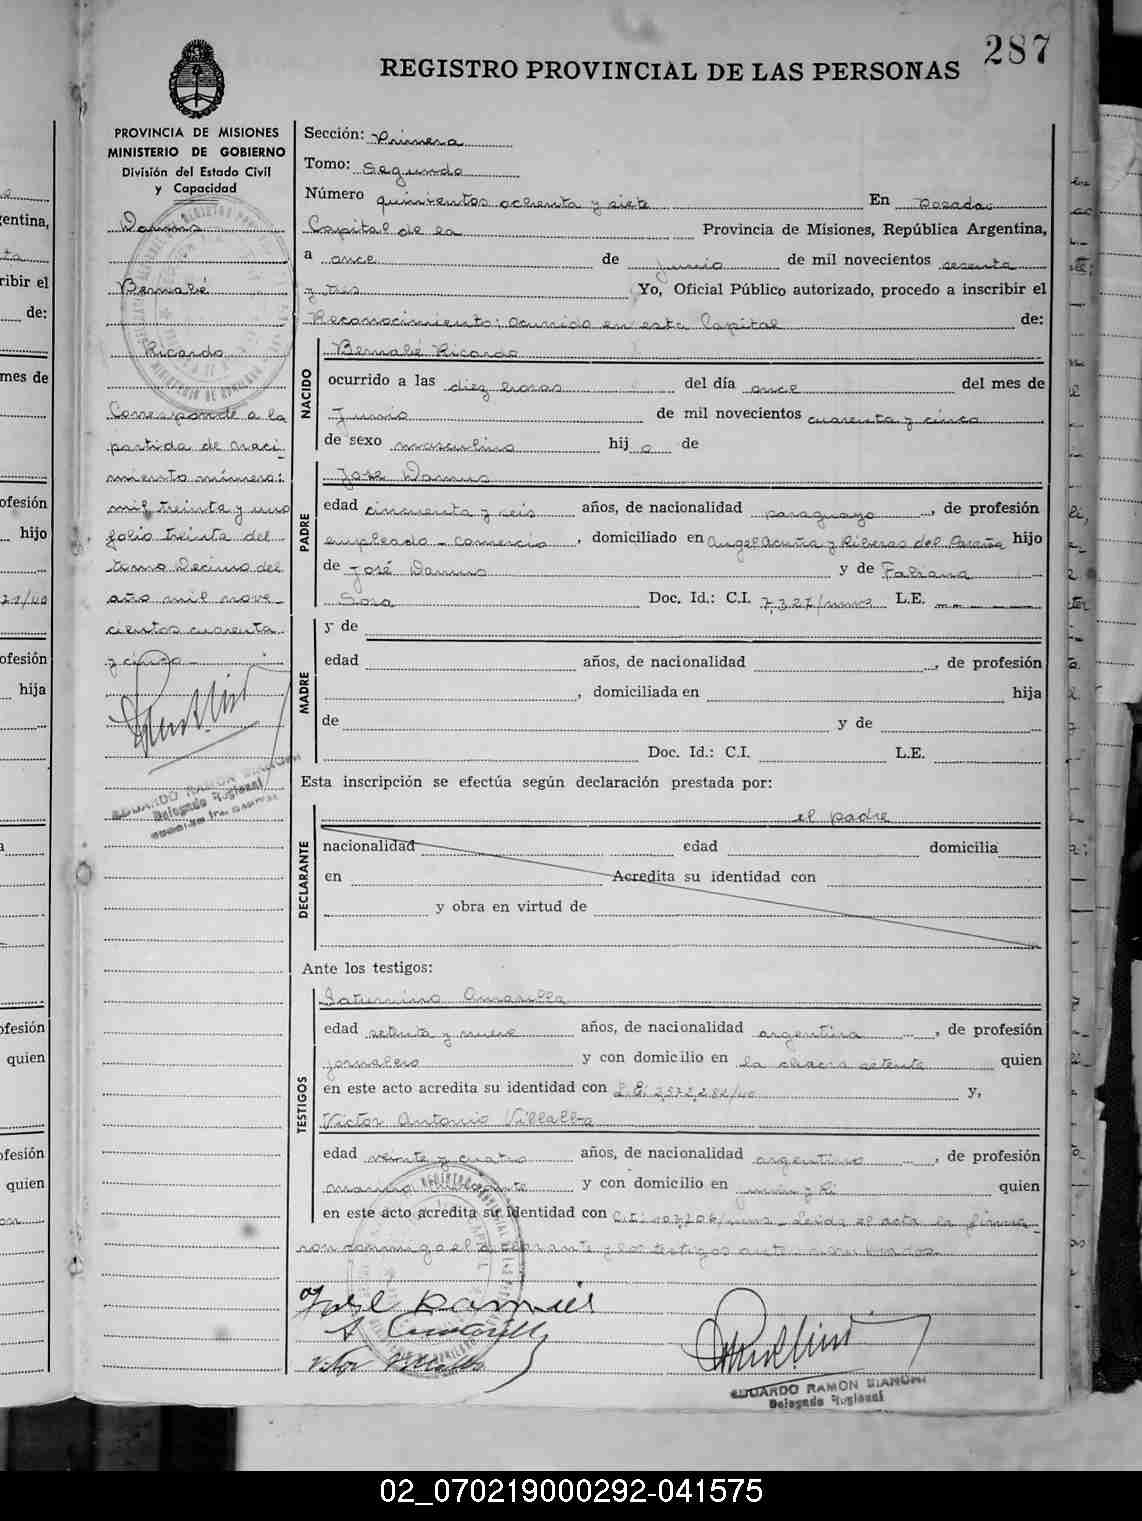 287
REGISTRO PROVINCIAL DE LAS PERSONAS
PROVINCIA DE MISIONES
MINISTERIO DE GOBIERNO
División del Estado Civil
y Capacidad
Damus
Bernabé
Ricardo
Corresponde a la
partida de naci
miento número:
mil treinta y uno
folio treinta del
tomo Decimo del
año mil nove
cientos cuarenta
y cinco
EDUARDO RAMON
Delegado Regional
Sección: Primera
Tomo: Segundo
Número quinientos ochenta y siete En Posadas
Capital de la Provincia de Misiones, República Argentina,
a once de Junio de mil novecientos sesenta
y tres Yo, Oficial Público autorizado, procedo a inscribir el
Reconocimiento: ocurrido en esta Capital de:
NACIDO
Bernabé Ricardo
ocurrido a las diez horas del día once del mes de
Junio de mil novecientos cuarenta y cinco
de sexo masculino hij o de
PADRE
José Damus
edad cincuenta y seis años, de nacionalidad paraguayo, de profesión
empleado - comercio, domiciliado en Angel Acuña y Riberas del Paraná hijo
de José Damus y de Fabiana
Sosa Doc. Id.: C.I. 7,327/mnes L.E.
MADRE
y de
edad años, de nacionalidad , de profesión
, domiciliada en hija
de y de
Doc. Id.: C.I. L.E.
Esta inscripción se efectúa según declaración prestada por:
DECLARANTE
el padre
nacionalidad edad domicilia
en Acredita su identidad con
y obra en virtud de
Ante los testigos:
TESTIGOS
Saturnino Amarilla
edad setenta y nueve años, de nacionalidad argentina, de profesión
jornalero y con domicilio en la chacra setenta quien
en este acto acredita su identidad con L.E. y,
Victor Antonio Villalba
edad veinte y cuatro años, de nacionalidad argentino, de profesión
y con domicilio en quien
en este acto acredita su identidad con C.I. Leida el acta la firma
ron conmigo el declarante y los testigos antes nombrados
José Damus
EDUARDO RAMON
Delegado Regional
02_070219000292-041575